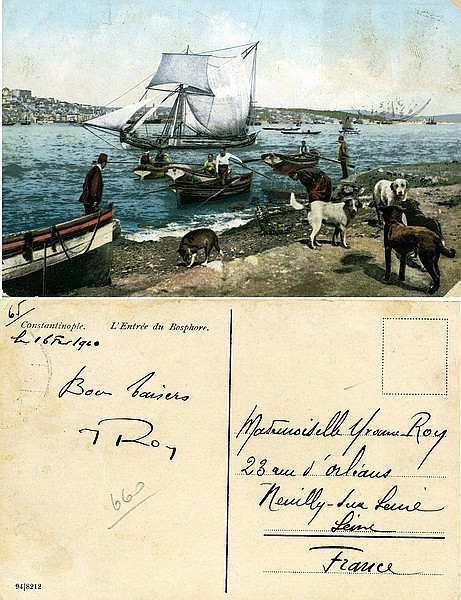 65
Constantinople. L'Entrée du Bosphore.
le 16 Fev 1910
Bons baisers
Y Roy
660
Mademoiselle Yvonne Roy
23 rue d'Orléans
Neuilly-sur Seine
Seine
France
94|8212